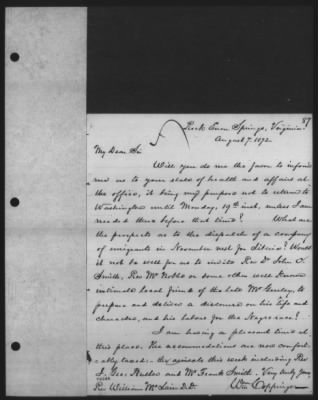 87
Rock Enon Springs, Virginia
August 7. 1872.
My Dear Sir
Will you do me the favor to inform
me as to your state of health and affairs at
the office, it being my purpose not to return to
Washington until Monday, 19th inst, unless I am
needed there before that time? What are
the prospects as to the dispatch of a company
of emigrants in November next for Liberia? Would
it not be well for us to invite Rev Dr John C.
Smith, Rev Mr Noble or some other well known
intimate local friend of the late Mr Gurley, to
prepare and deliver a discourse on his life and
character, and his labors for the Negro race?
I am having a pleasant time at
this place. The accommodations are now comfort-
ably taxed - the arrivals this week including Rev
J. Geo. Butler and Mr Frank Smith. Very truly yours
Rev William McLain D.D. Wm Coppinger